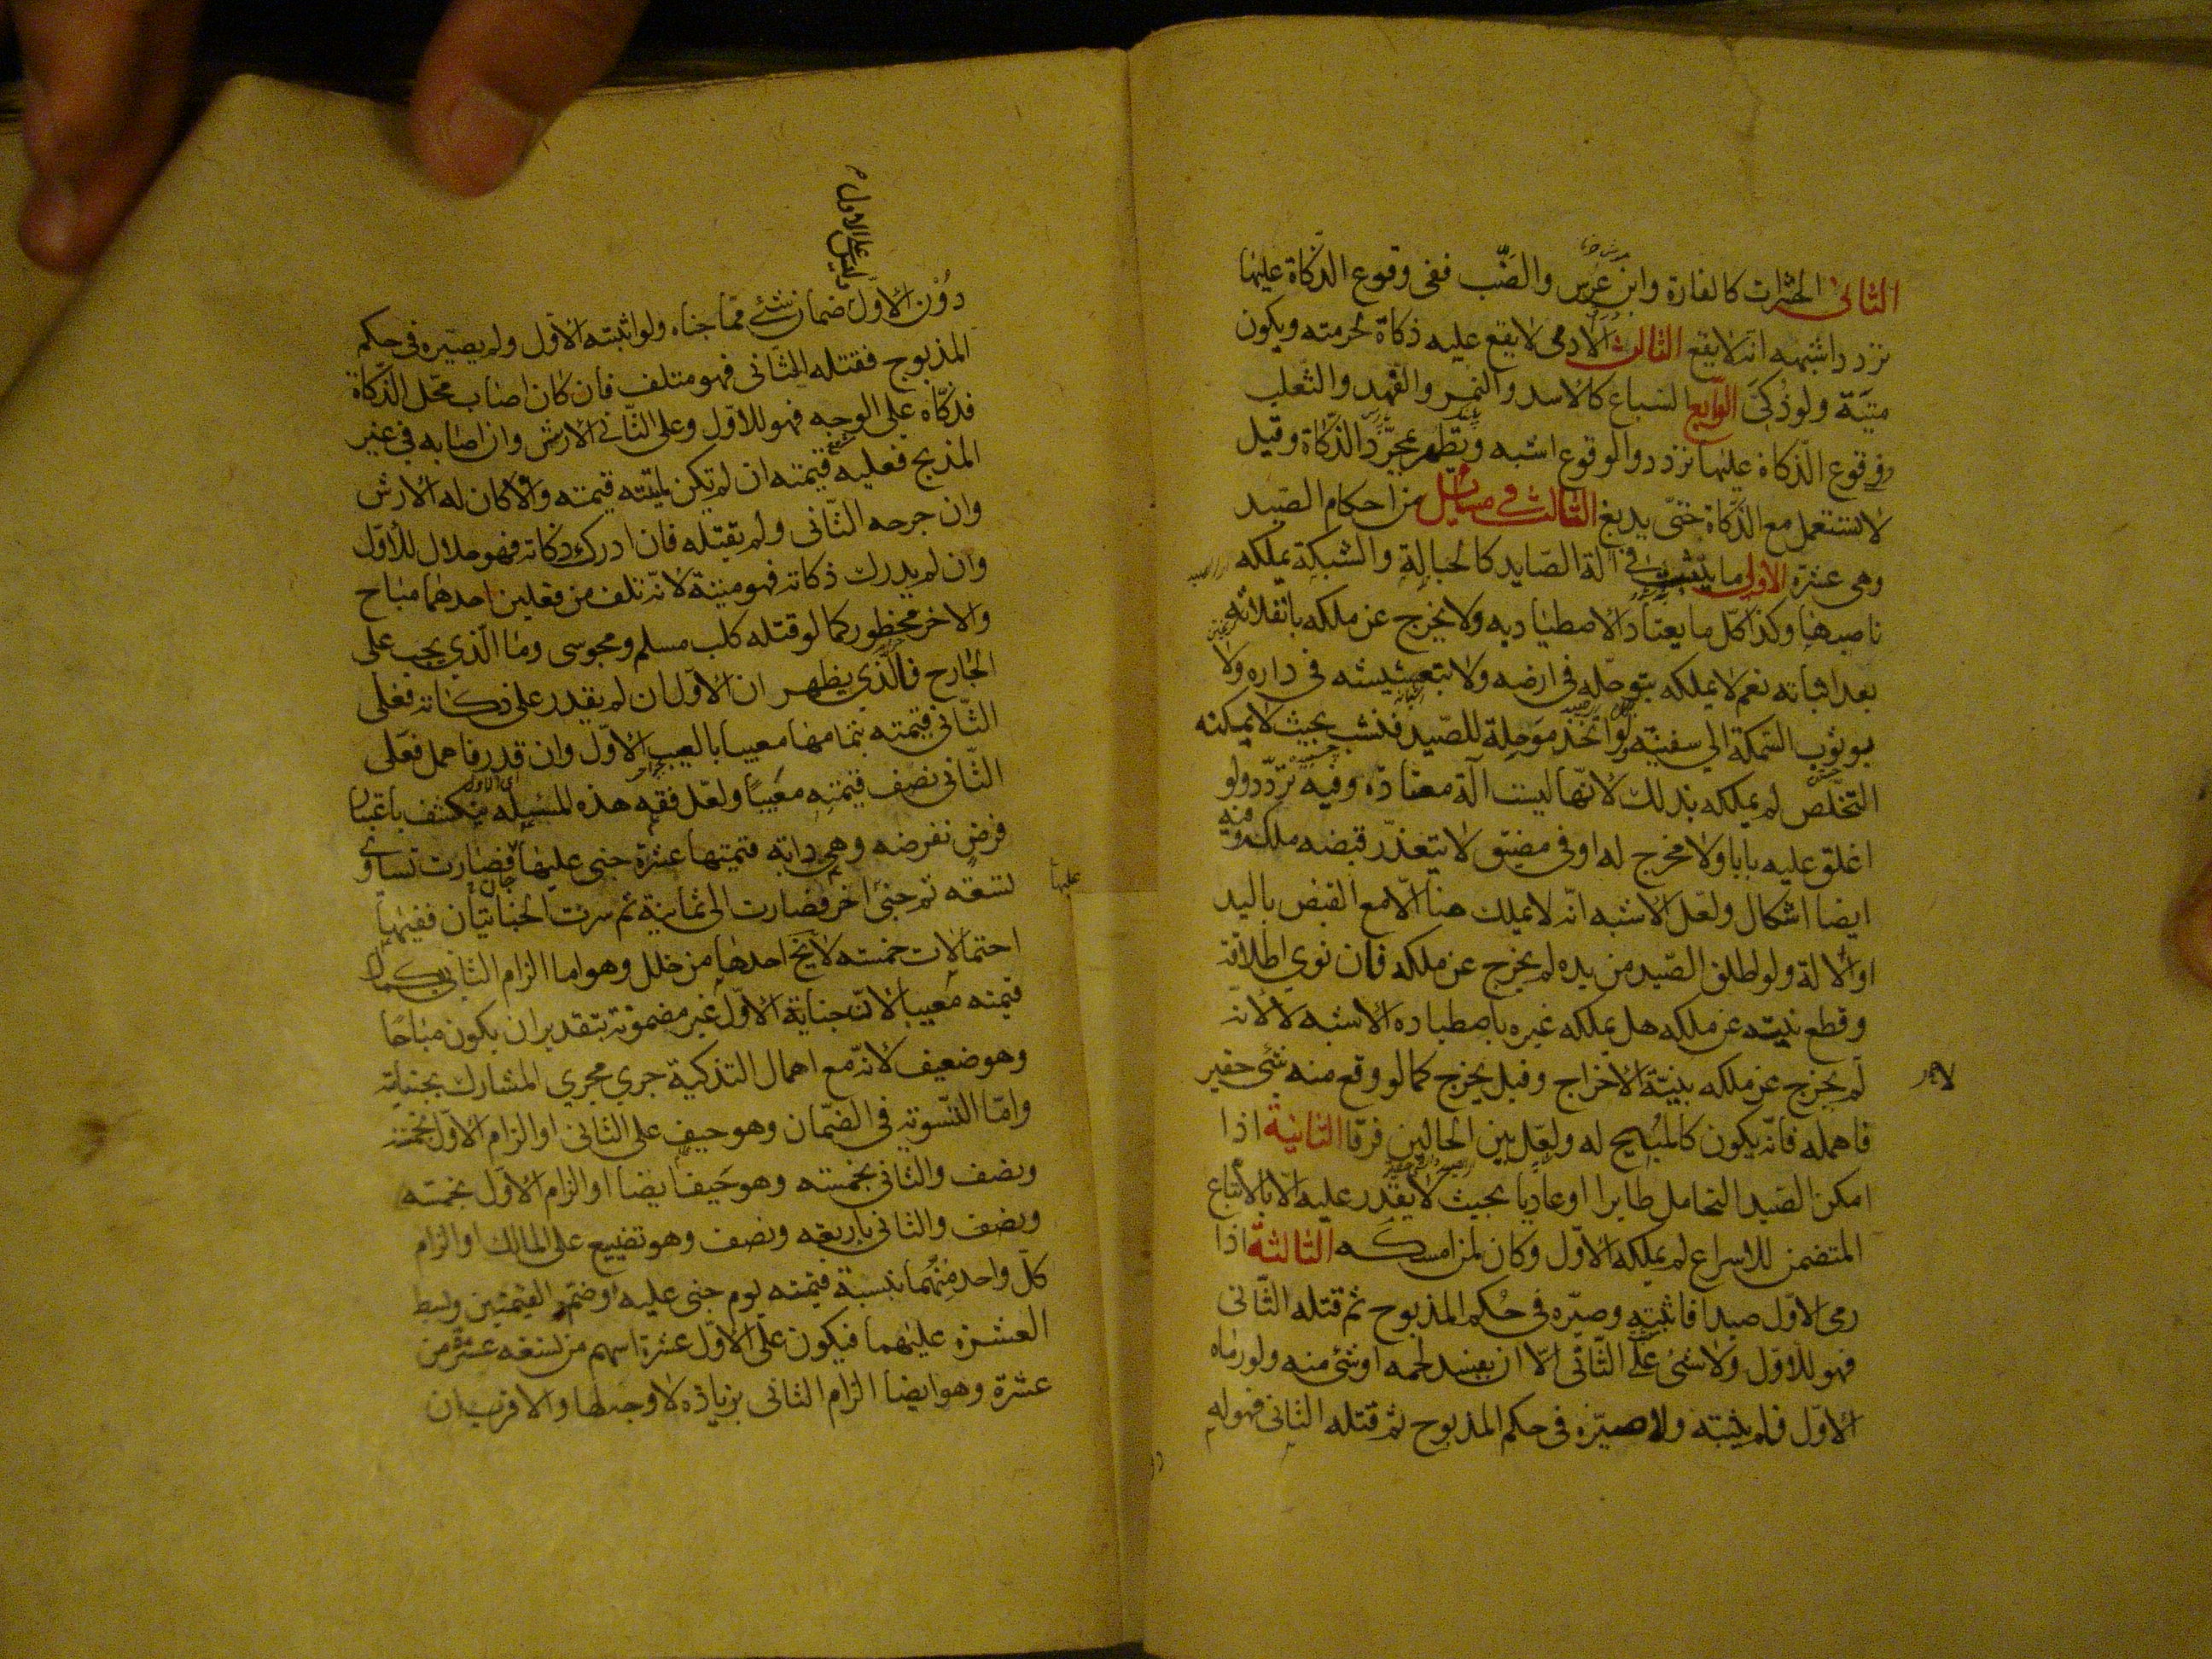 الثانى الحشرات كالفارة وابن عرس والضب ففى وقوع الذكاة عليها
تردد اشبهه انه لا يقع الثالث الادمى لا يقع عليه ذكاة لحرمته ويكون
ميتة ولو ذكى الرابع السباع كالاسد والنمر والفهد والثعلب
وفى وقوع الذكاة عليها تردد والوقوع اشبه وتطهر بمجرد الذكاة وقيل
لا تستعمل مع الذكاة حتى يدبغ الثالث فى مسائل من احكام الصيد
وهى عشرة الاول ما يثبت فى آلة الصايد كالحبالة والشبكة يملكه
ناصبها وكذا كل ما يعتاد الاصطياد به ولا يخرج عن ملكه بانفلاته
بعد اثباته نعم لا يملكه بتوحله فى ارضه ولا بتعشيشه فى داره ولا
بوثوب السمكة الى سفينته ولو اتخذ موحلة للصيد فنشب بحيث لا يمكنه
التخلص لم يملكه بذلك لانها ليست آلة معتادة وفيه تردد ولو
اغلق عليه بابا ولا مخرج له او فى مضيق لا يتعذر قبضه ملكه وفيه
ايضا اشكال ولعل الاشبه انه لا يملك هنا الا مع القبض باليد
او الالة ولو اطلق الصيد من يده لم يخرج عن ملكه فان نوى اطلاقه
وقطع نيته عن ملكه هل يملكه غيره باصطياده الاشبه لا لانه
لم يخرج عن ملكه بنية الاخراج وقيل يخرج كما لو وقع منه شئ حقير
فاهمله فانه يكون كالمبيح له ولعل بين الحالين فرقا الثانية اذا
امكن الصيد التحامل طايرا او عاديا بحيث لا يقدر عليه الا بالاتباع
المتضمن للاسراع لم يملكه الاول وكان لمن امسكه الثالثة اذا
رمى الاول صيدا فاثبته وصيره فى حكم المذبوح ثم قتله الثانى
فهو للاول ولا شئ على الثانى الا ان يفسد لحمه او شئ منه ولو رماه
الاول فلم يثبته ولا صيره فى حكم المذبوح ثم قتله الثانى فهو له
وليس على الاول
دون الاول ضمان شئ مما جناه ولو اثبته الاول ولم يصيره فى حكم
المذبوح فقتله الثانى فهو متلف فان كان اصاب محل الذكاة
فذكاه على الوجه فهو للاول وعلى الثانى الارش وان اصابه فى غير
المذبح فعليه قيمته ان لم تكن لميتته قيمته والا كان له الارش
وان جرحه الثانى ولم يقتله فان ادرك ذكاته فهو حلال للاول
وان لم يدرك ذكاته فهو ميتة لانه تلف من فعلين احدهما مباح
والاخر محظور كما لو قتله كلب مسلم ومجوسى وما الذي يجب على
الجارح فالذي يظهر ان الاول ان لم يقدر على ذكاته فعلى
الثانى قيمته بتمامها معيبا بالعيب الاول وان قدر فاهمل فعلى
الثانى نصف قيمته معيبا ولعل فقه هذه المسيله ينكشف باعتبار
فرض نفرضه وهى دابه قيمتها عشرة جنى عليها فصارت تساوى
تسعه ثم جنى اخر فصارت الى ثمانية ثم سرت الجنايتان ففيها
احتمالات خمسه لا يخ احدها من خلل وهو اما الزام الثانى بكمال
قيمته معيبا لان جناية الاول غير مضمونة بتقدير ان يكون مباحا
وهو ضعيف لانه مع اهمال التذكية جرى مجرى المشارك بجنايته
واما التسوية فى الضمان وهو حيف على الثانى او الزام الاول بخمسة
ونصف والثانى بخمسه وهو حيف ايضا او الزام الاول بخمسه
ونصف والثانى باربعه ونصف وهو تضييع على المالك او الزام
كل واحد منهما بنسبة قيمته يوم جنى عليه او ضم القيمتين وبسط
العشرة عليهما فيكون على الاول عشرة اسهم من تسعه عشر من
عشرة وهو ايضا الزام الثانى بزيادة لا وجه لها والاقرب ان